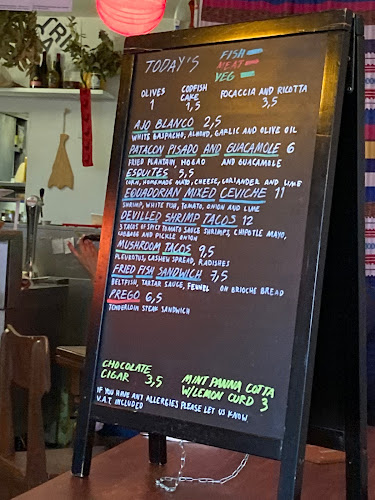 TODAY'S
FISH
MEAT
VEG
OLIVES
1
CODFISH
CAKE
1,5
FOCACCIA AND RICOTTA
3,5
AJO BLANCO 2,5
WHITE GASPACHO, ALMOND, GARLIC AND OLIVE OIL
PATACON PISADO AND GUACAMOLE 6
FRIED PLANTAIN, HOGAO AND GUACAMOLE
ESQUITES 5,5
CORN, HOMEMADE MAYO, CHEESE, CORIANDER AND LIME
EQUADORIAN MIXED CEVICHE 11
SHRIMP, WHITE FISH, TOMATO, ONION AND LIME
DEVILLED SHRIMP TACOS 12
3 TACOS OF SPICY TOMATO SAUCE SHRIMPS, CHIPOTLE MAYO,
CABBAGE AND PICKLE ONION
MUSHROOM TACOS 9,5
PLEUROTUS, CASHEW SPREAD, RADISHES
FRIED FISH SANDWICH 7,5
BELTFISH, TARTAR SAUCE, FENNEL ON BRIOCHE BREAD
PREGO 6,5
TENDERLOIN STEAK SANDWICH
CHOCOLATE
CIGAR 3,5
MINT PANNA COTTA
W/LEMON CURD 3
IF YOU HAVE ANY ALLERGIES PLEASE LET US KNOW
V.A.T. INCLUDED